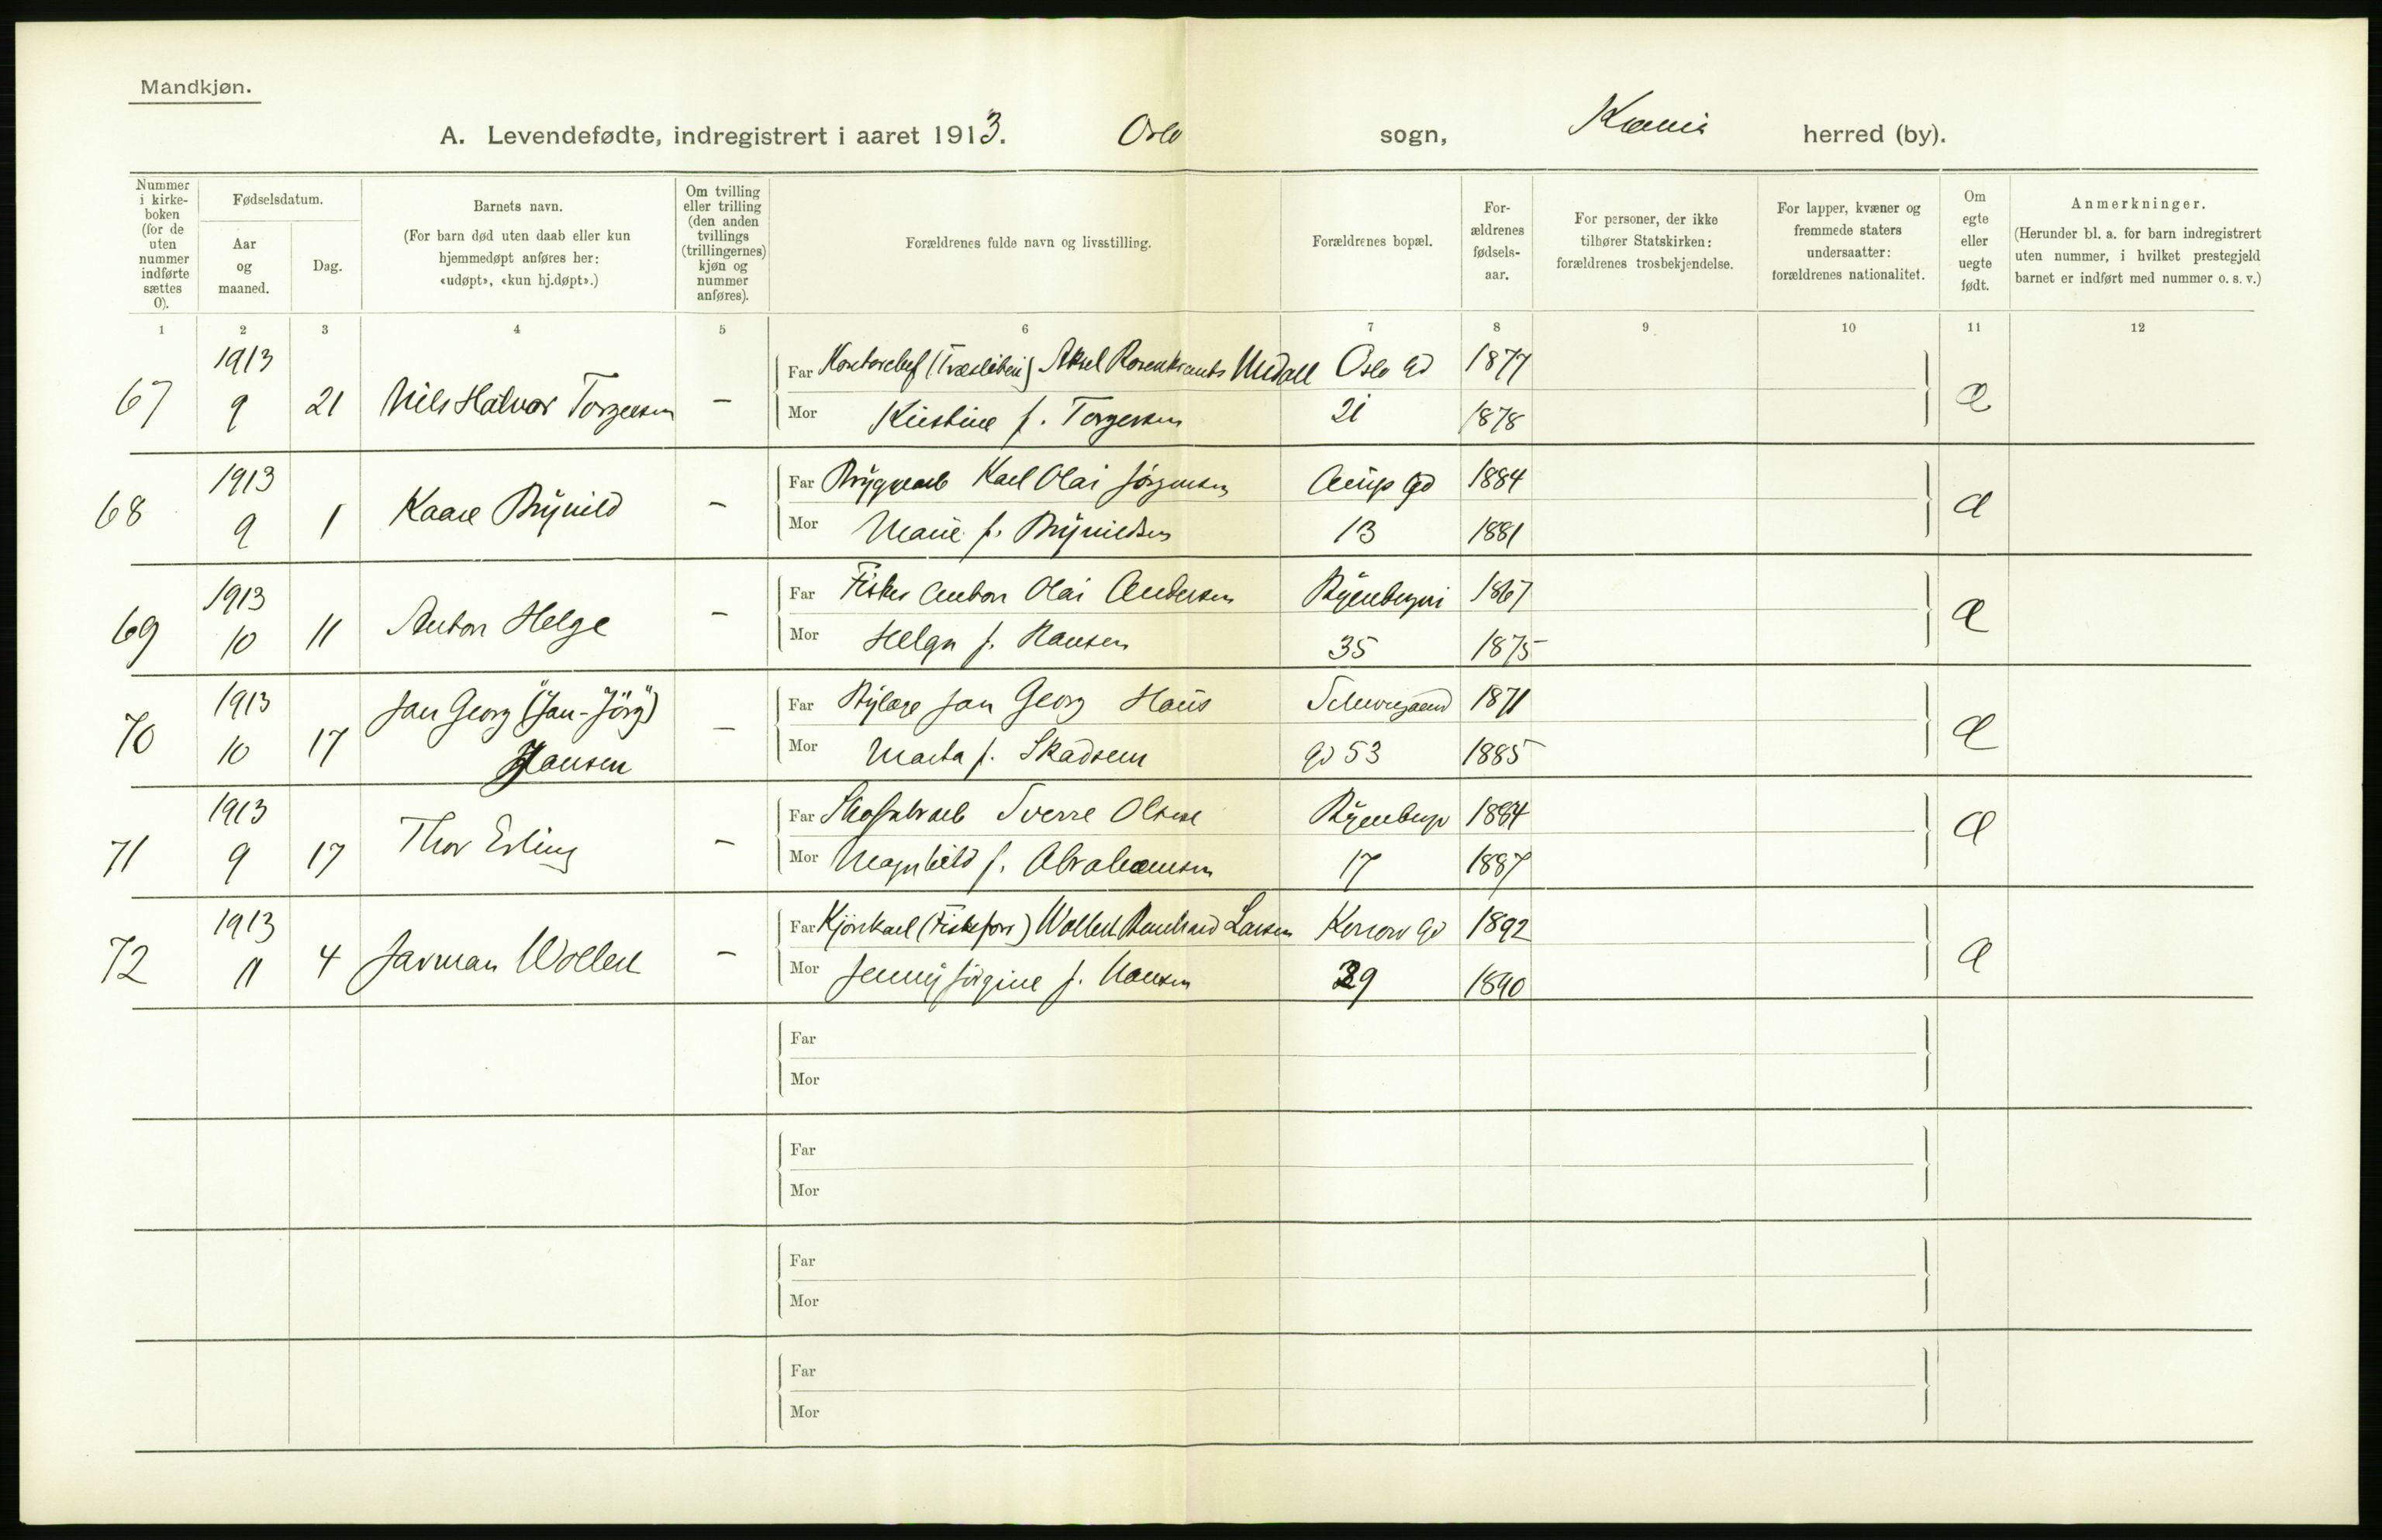 Mandkjøn.
A. Levendefødte, indregistrert i aaret 1913. Oslo sogn, Krania herred (by).
Nummer i kirke-boken (for de uten nummer indførte sættes 0).
Fødselsdatum.
Aar og maaned.
Dag.
Barnets navn.
(For barn død uten daab eller kun hjemmedøpt anføres her: «udøpt», «kun hj.døpt».)
Om tvilling eller trilling (den anden tvillings (trillingernes) kjøn og nummer anføres).
Forældrenes fulde navn og livsstilling.
Forældrenes bopæl.
For-ældrenes fødsels-aar.
For personer, der ikke tilhører Statskirken: forældrenes trosbekjendelse.
For lapper, kvæner og fremmede staters undersaatter: forældrenes nationalitet.
Om egte eller uegte født.
Anmerkninger.
(Herunder bl. a. for barn indregistrert uten nummer, i hvilket prestegjeld barnet er indført med nummer o. s. v.)
1 2 3 4 5 6 7 8 9 10 11 12
1913 Far Aksel Rosenkrants Oslo gd 1877
67 9 21 Nils Halvor Torgersen - Mor Kristine f. Torgersen 21 1878
1913 Far Karl Olai Jørgensen gd 1884
68 9 1 Kaare Brynild - Mor Marie f. Brynildsen 13 1881
1913 Far Fisker Anton Olai Andersen 1867
69 10 11 Anton Helge - Mor Helga f. Hansen 35 1875
1913 Jan Georg ("Jan-Jörg") Far Jan Georg 1871
70 10 17 Hansen - Mor Marta f. Skadsem gd 53 1885
1913 Far Sverre Olsen 1884
71 9 17 Thor Erling - Mor Magnhild f. Abrahamsen 17 1887
1913 Far Kjørekarl Larsen gd 1892
72 11 4 Jarman - Mor Jenny Jørgine f. Hansen 39 1890
Far
Mor
Far
Mor
Far
Mor
Far
Mor